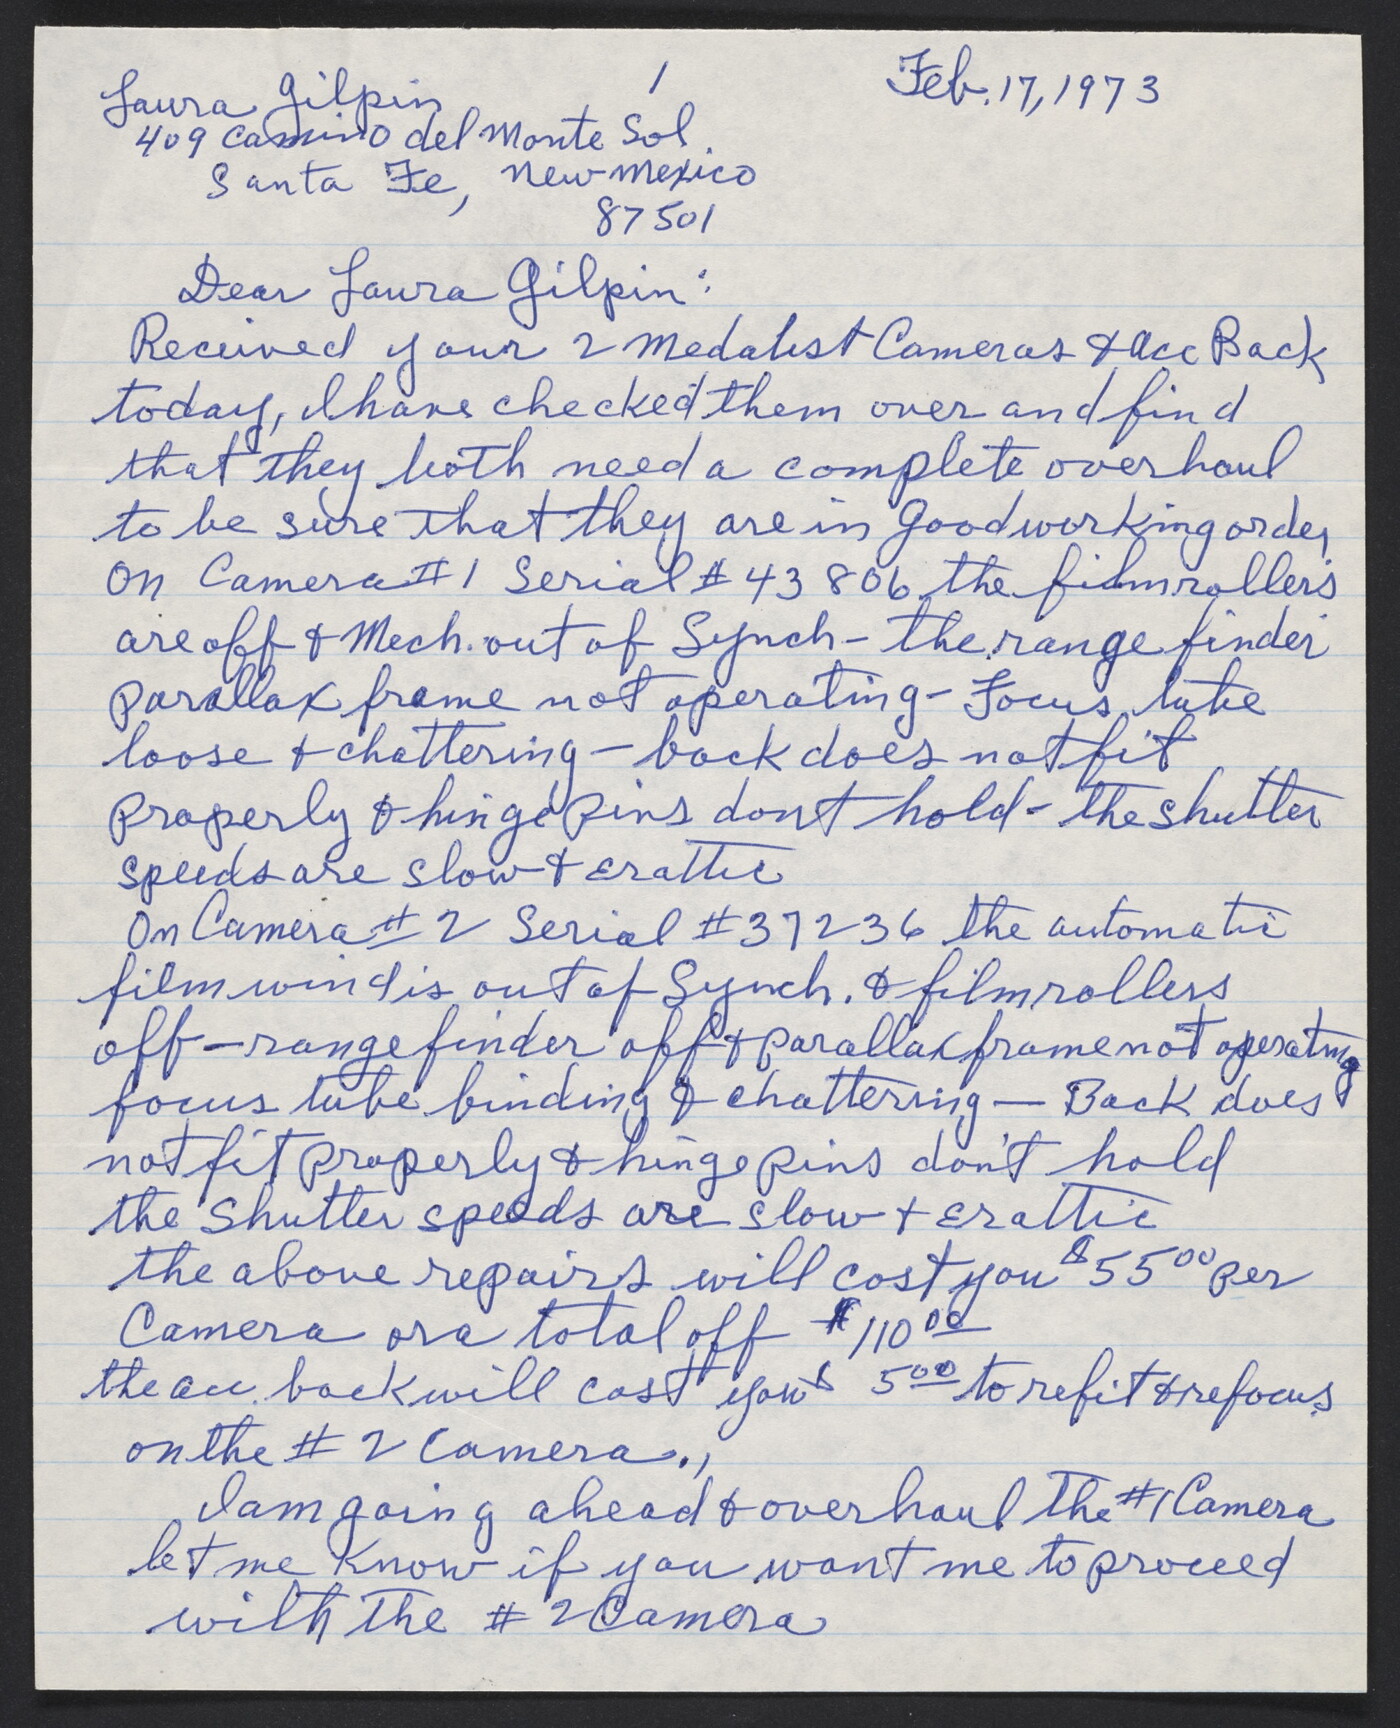 1
Feb. 17, 1973
Laura Gilpin
409 Camino del Monte Sol
Santa Fe, New Mexico
87501
Dear Laura Gilpin:
Received your 2 Medalist Cameras & Acc Back
today, I have checked them over and find
that they both need a complete overhaul
to be sure that they are in good working order,
On Camera #1 Serial # 43806 the film rollers
are off & Mech. out of Synch - the range finder
parallax frame not operating - Focus tube
loose & chattering - back does not fit
properly & hinge pins dont hold - the shutter
speeds are slow & erattic
On Camera #2 Serial #37236 the automatic
film wind is out of Synch. & film rollers
off - range finder off & parallax frame not operating
focus tube binding & chattering - Back does
not fit properly & hinge pins don't hold
the Shutter speeds are slow & erattic
the above repairs will cost you $55 00 per
Camera or a total off $110 00
the acc. back will cost you $ 5 00 to refit & refocus
on the # 2 Camera.,
I am going ahead & overhaul the #1 Camera
let me know if you want me to proceed
with the # 2 Camera